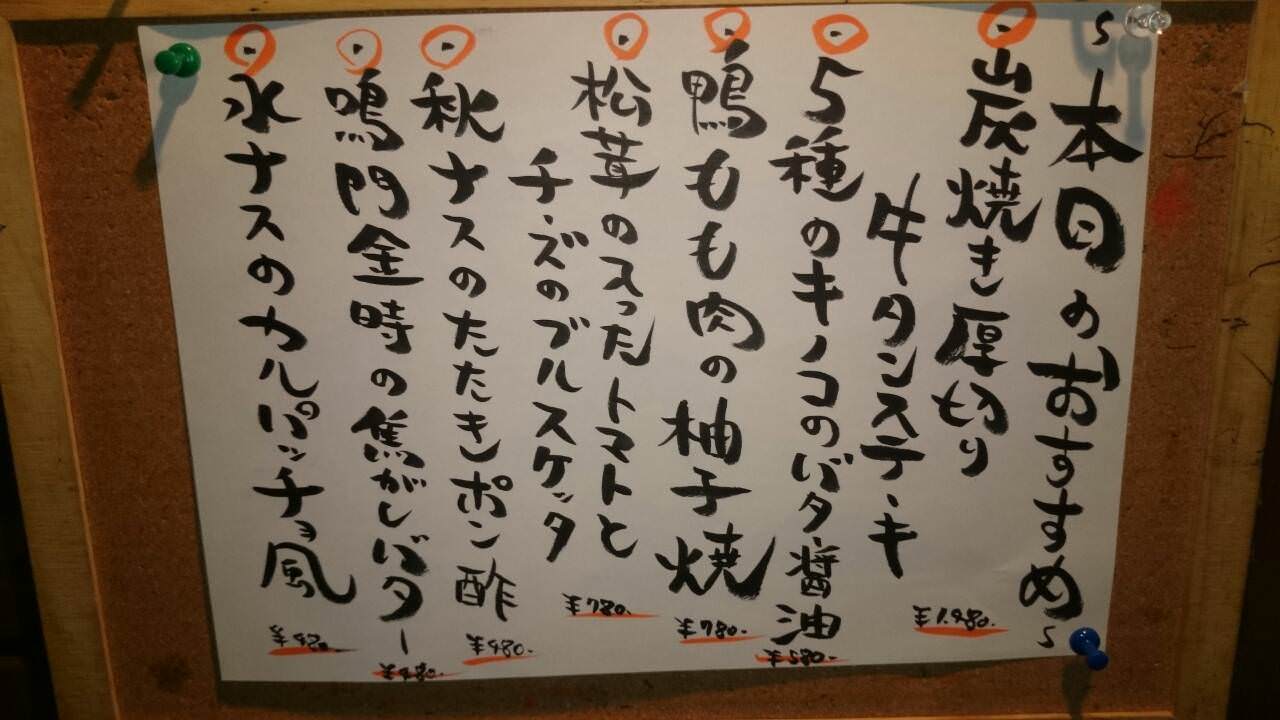 ~本日のおすすめ~
・炭焼き厚切り
牛タンステーキ
¥1,480.
・5種のキノコのバター醤油
¥580.
・鴨もも肉の柚子焼
¥780.
・松茸の入ったトマトと
チーズのブルスケッタ
¥780.
・秋ナスのたたきポン酢
¥480.
・鳴門金時の焦がしバター
¥480.
・水ナスのカルパッチョ風
¥420.